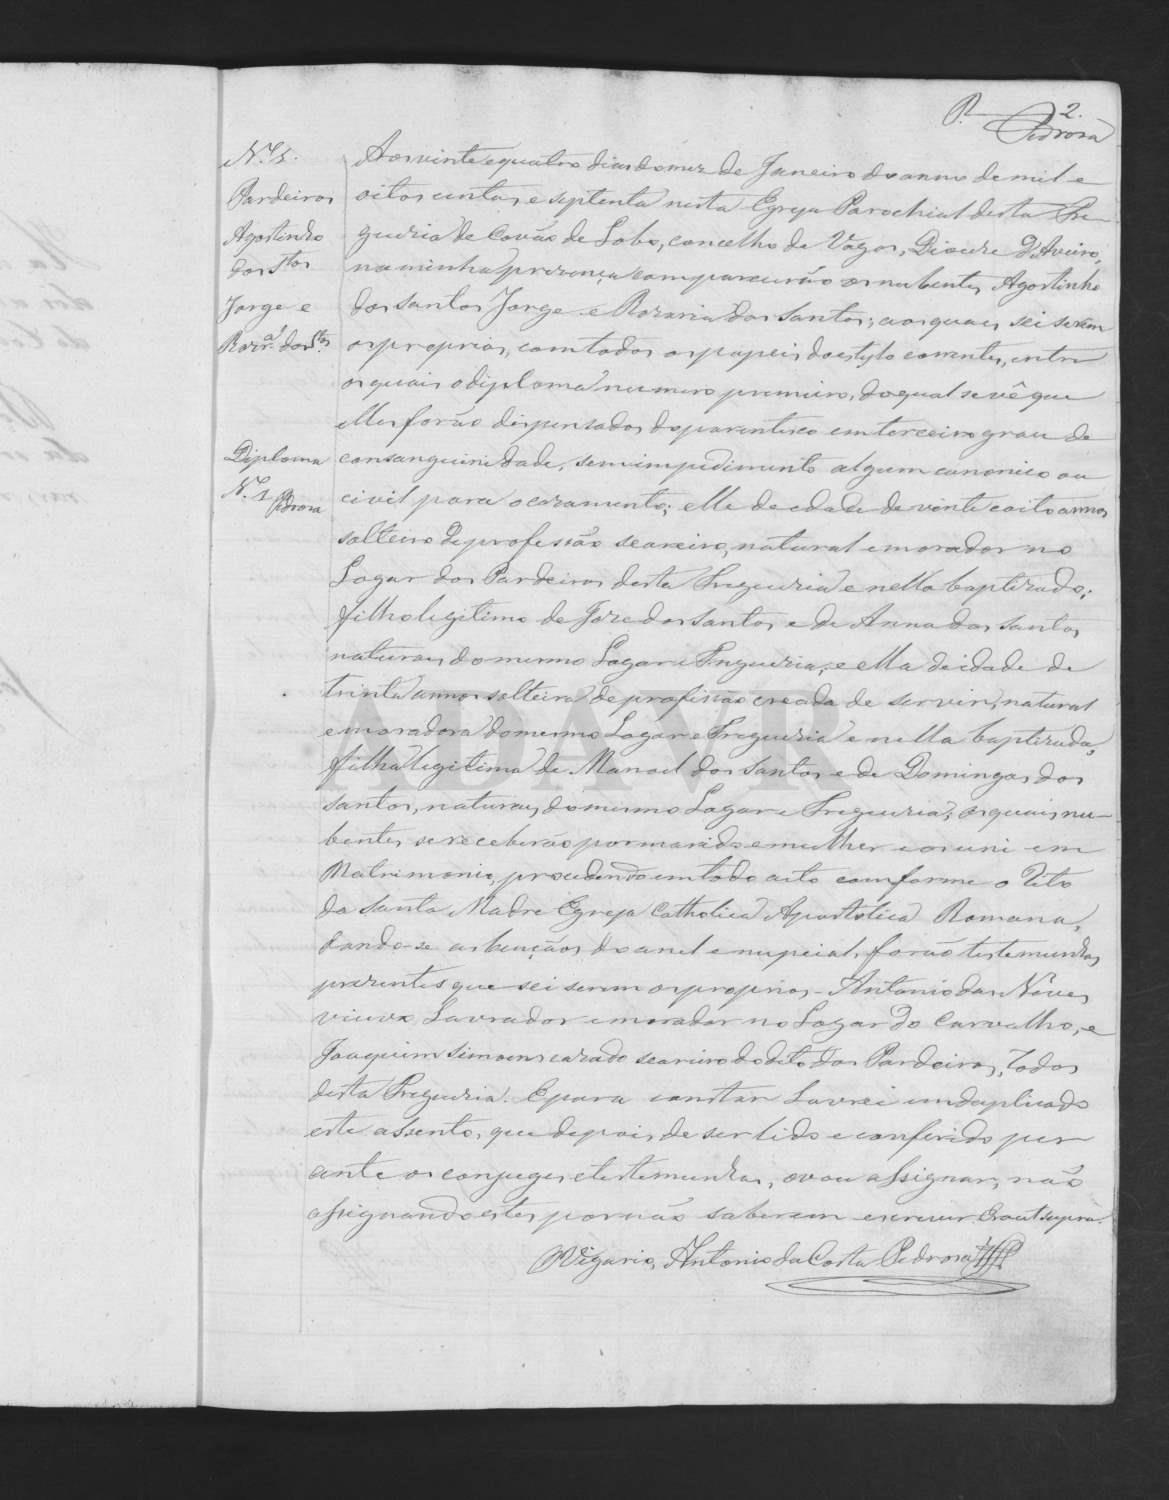 R. 2.
Pedrosa
N.º 1.
Pardeiros
Agostinho
dos S.tos
Jorge e
Rozr.ª dos S.tos
Diploma
N.º 1 Pedrosa
Aos vinte e quatro dias do mez de Janeiro do anno de mil e
oitos centos e septenta nesta Egreja Parochial desta Fre-
guezia de Covão de Lobo, concelho de Vagos, Diocese D'Aveiro,
na minha prezença comparecerão os nubentes Agostinho
dos Santos Jorge e Rozaria dos Santos; aos quaes sei serem
os proprios, com todos os papeis do estylo correntes, entre
os quais o diploma numero primeiro, do qual se vê que
elles forão dispensados do parentesco em terceiro grau de
consanguinidade, sem impedimento algum canonico ou
civil para o cazamento; elle de edade de vinte e oito annos
solteiro de profissão seareiro, natural e morador no
Logar dos Pardeiros desta Freguezia e nella baptizado;
filho legitimo de Joze dos Santos e de Anna dos Santos
naturaes do mesmo Logar e Freguezia; e ella de idade de
trinta annos solteira de profissão creada de servir, natural
e moradora do mesmo Logar e Freguezia e nella baptizada,
filha legitima de Manoel dos Santos e de Domingas dos
Santos, naturaes do mesmo Logar e Freguezia; os quais nu-
bentes se receberão por marido e mulher e os uni em
Matrimonio, procedendo em todo acto comforme o Rito
da Santa Madre Egreja Catholica Apostolica Romana,
dando-se as bençãos do anel e nupciais, forão testemunhas
prezentes que sei serem os proprios - Antonio das Neves
viuvo Lavrador e morador no Logar do Carvalho, e
Joaquim Simoens cazado seareiro do dito dos Pardeiros, todos
desta Freguezia. E para constar Lavrei em duplicado
este assento, que depois de ser lido e conferido per
ante os conjuges e testemunhas, o vou assignar, não
assignando estes por não saberem escrever. Era ut supra.
O Vigario, Antonio da Costa Pedrosa
ADAVR